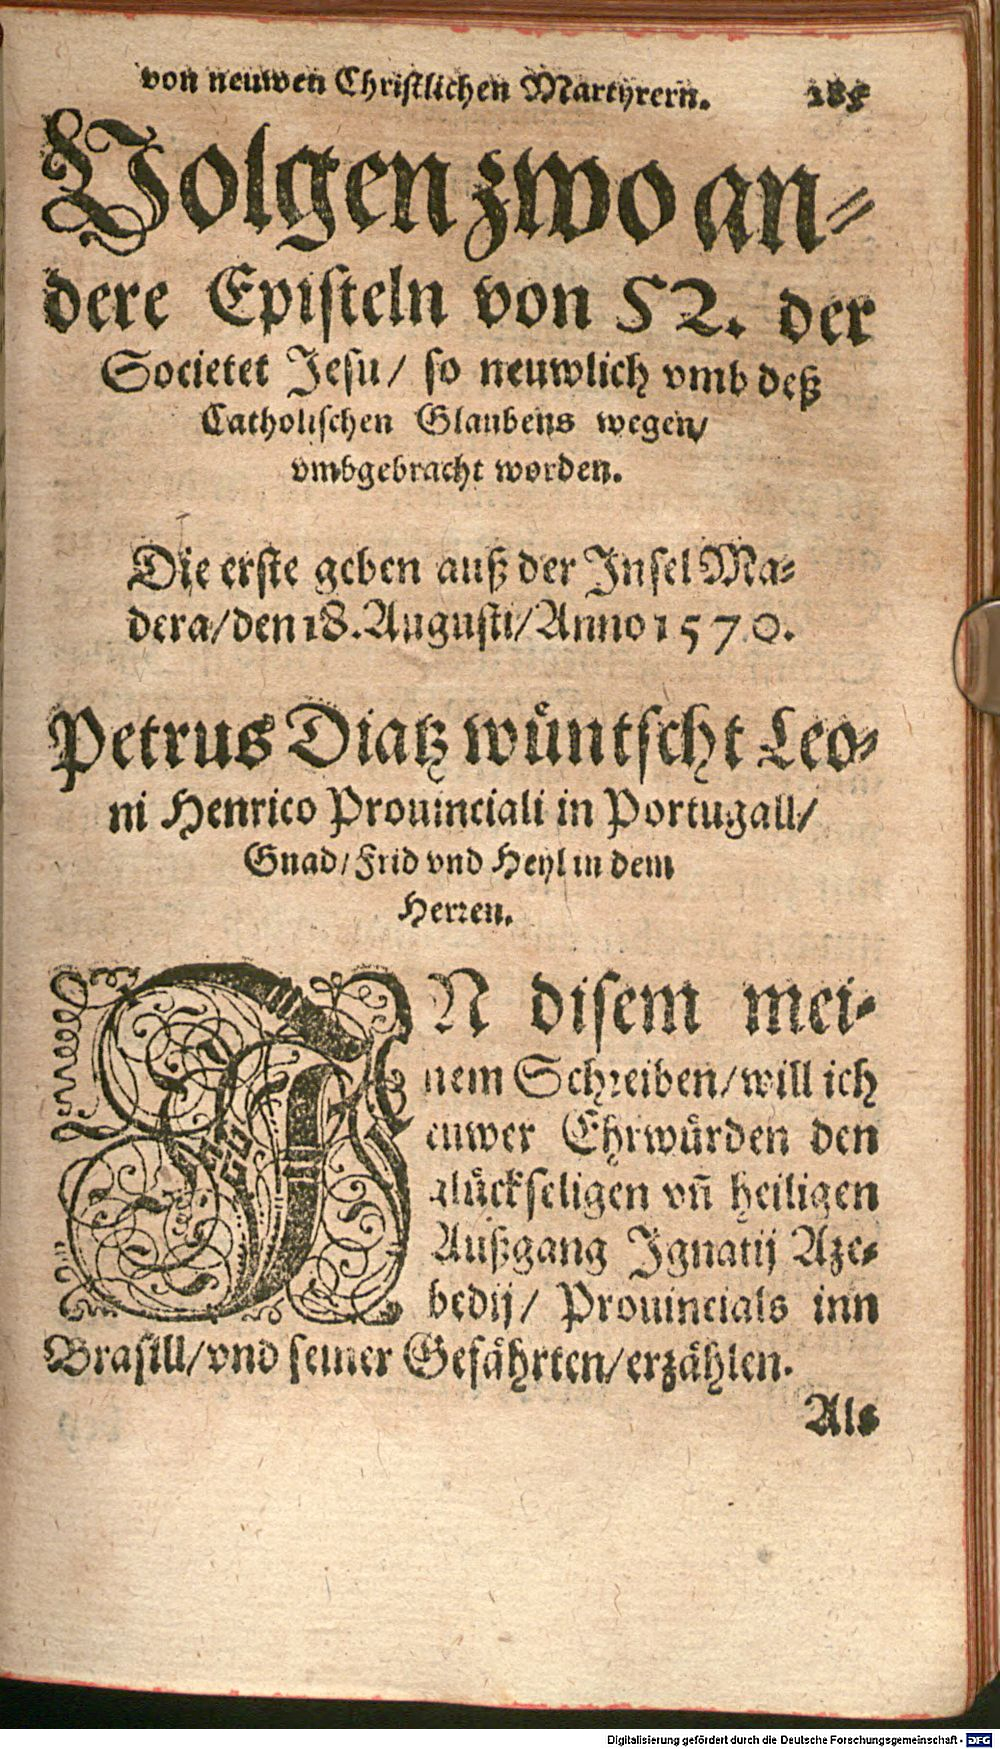 von neuwen Christlichen Martyrern. 185
Volgen zwo an-
dere Episteln von 52. der
Societet Jesu/ so neuwlich vmb deß
Catholischen Glaubens wegen/
vmbgebracht worden.
Die erste geben auß der Insel Ma-
dera/den 18. Augusti/Anno 1570.
Petrus Diatz wüntscht Leo-
ni Henrico Prouinciali in Portugall/
Gnad/Frid vnd Heyl in dem
Herren.
IN disem mei-
nem Schreiben/will ich
euwer Ehrwürden den
glückseligen vñ heiligen
Außgang Ignatij Aze-
bedij/ Prouincials inn
Brasill/vnd seiner Gefährten/erzählen.
Als
Digitalisierung gefördert durch die Deutsche Forschungsgemeinschaft - DFG